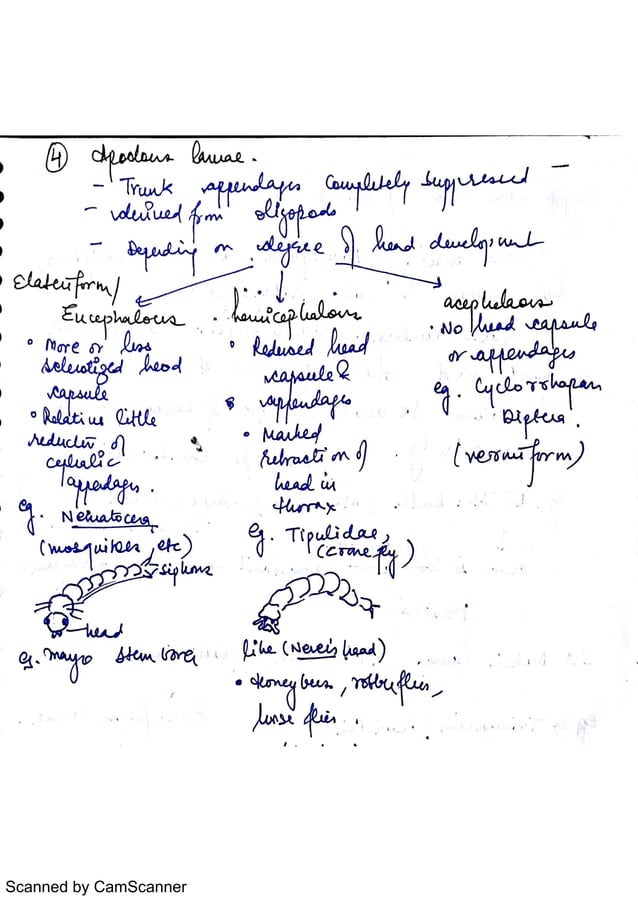 ④ Apodous larvae.
- Trunk appendages completely suppressed -
- derived from oligopods
- Depending on degree of head development
Elateriform/
Eucephalous
• More or less
sclerotized head
capsule
• Relative little
reduction of
cephalic
appendages.
eg. Nematocera
(mosquitoes, etc)
siphons
head
eg. mango stem borer
• hemicephalous
• Reduced head
capsule &
appendages
• Marked
retraction of
head in
thorax
eg. Tipulidae,
(crane fly)
like (Nereis head)
• Honey bees, robberflies,
horse flies.
acephalous
• No head capsule
or appendages
eg. Cyclorrhapan
Diptera.
(vermiform)
Scanned by CamScanner